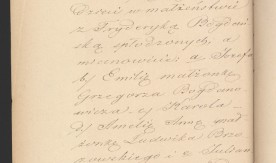 Dzieci w małżeństwie
z Fryderyką Bogdano
wiczką spłodzonych, a
mianowicie: a Jozefa
b/ Emilię małżonkę
Grzegorza Bogdano
wicza c/ Karola
d/ Amelię żonę
Ludwika Brzo
zowskiego i e Julian